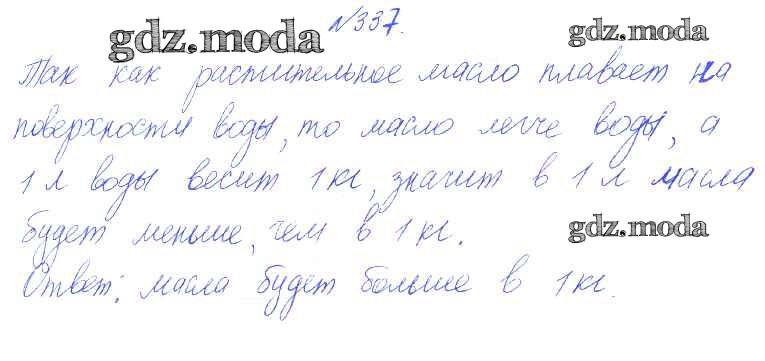 №337.
gdz.moda gdz.moda
Так как растительное масло плавает на
поверхности воды, то масло легче воды, а
1 л воды весит 1 кг, значит в 1 л масла
будет меньше, чем в 1 кг.
gdz.moda
Ответ: масла будет больше в 1 кг.